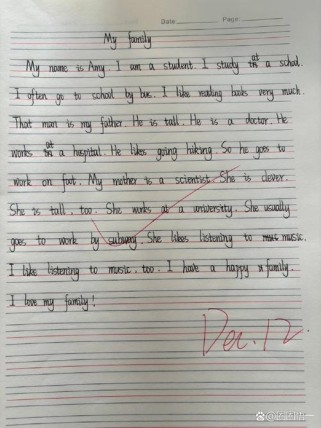 Date: Page:
My family
My name is Amy. I am a student. I study at a school.
I often go to school by bus. I like reading books very much.
That man is my father. He is tall. He is a doctor. He
works at a hospital. He likes going hiking. So he goes to
work on foot. My mother is a scientist. She is clever.
She is tall, too. She works at a university. She usually
goes to work by subway. She likes listening to music.
I like listening to music, too. I have a happy family.
I love my family!
Dec. 12.